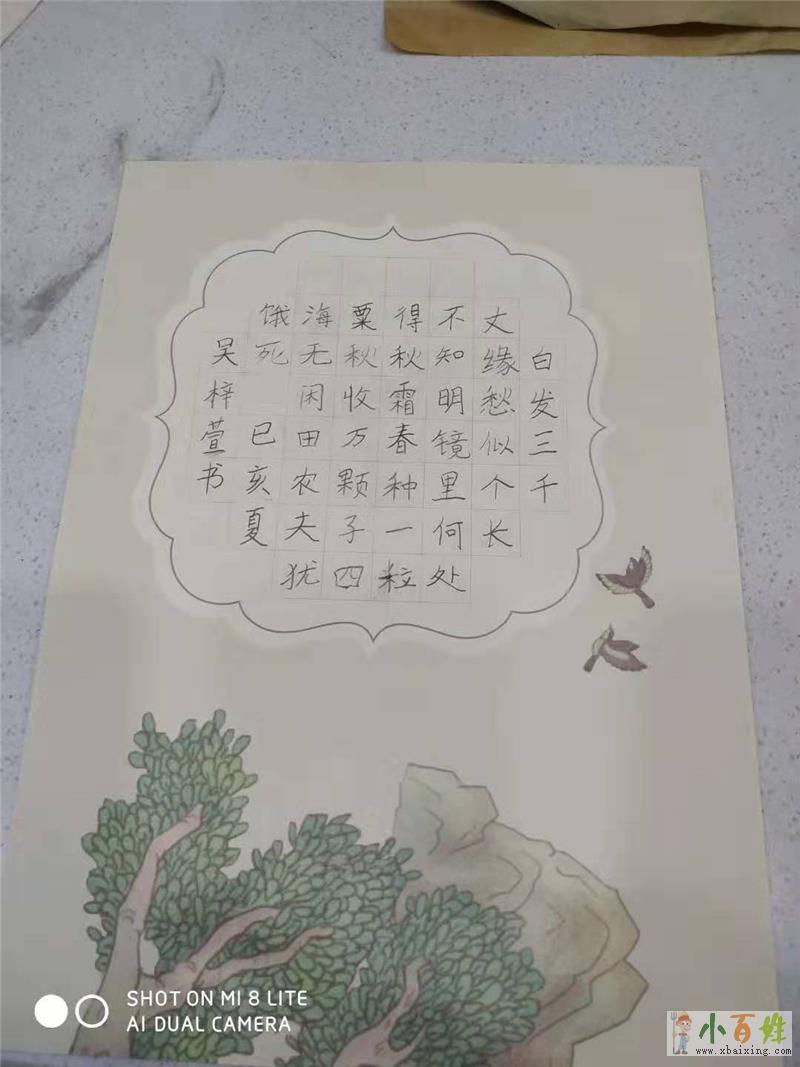 白发三千
丈缘愁似个长
不知明镜里何处
得秋霜春种一粒
粟秋收万颗子四
海无闲田农夫犹
饿死
己亥夏
吴梓萱书
SHOT ON MI 8 LITE
AI DUAL CAMERA
小百姓
www.xbaixing.com